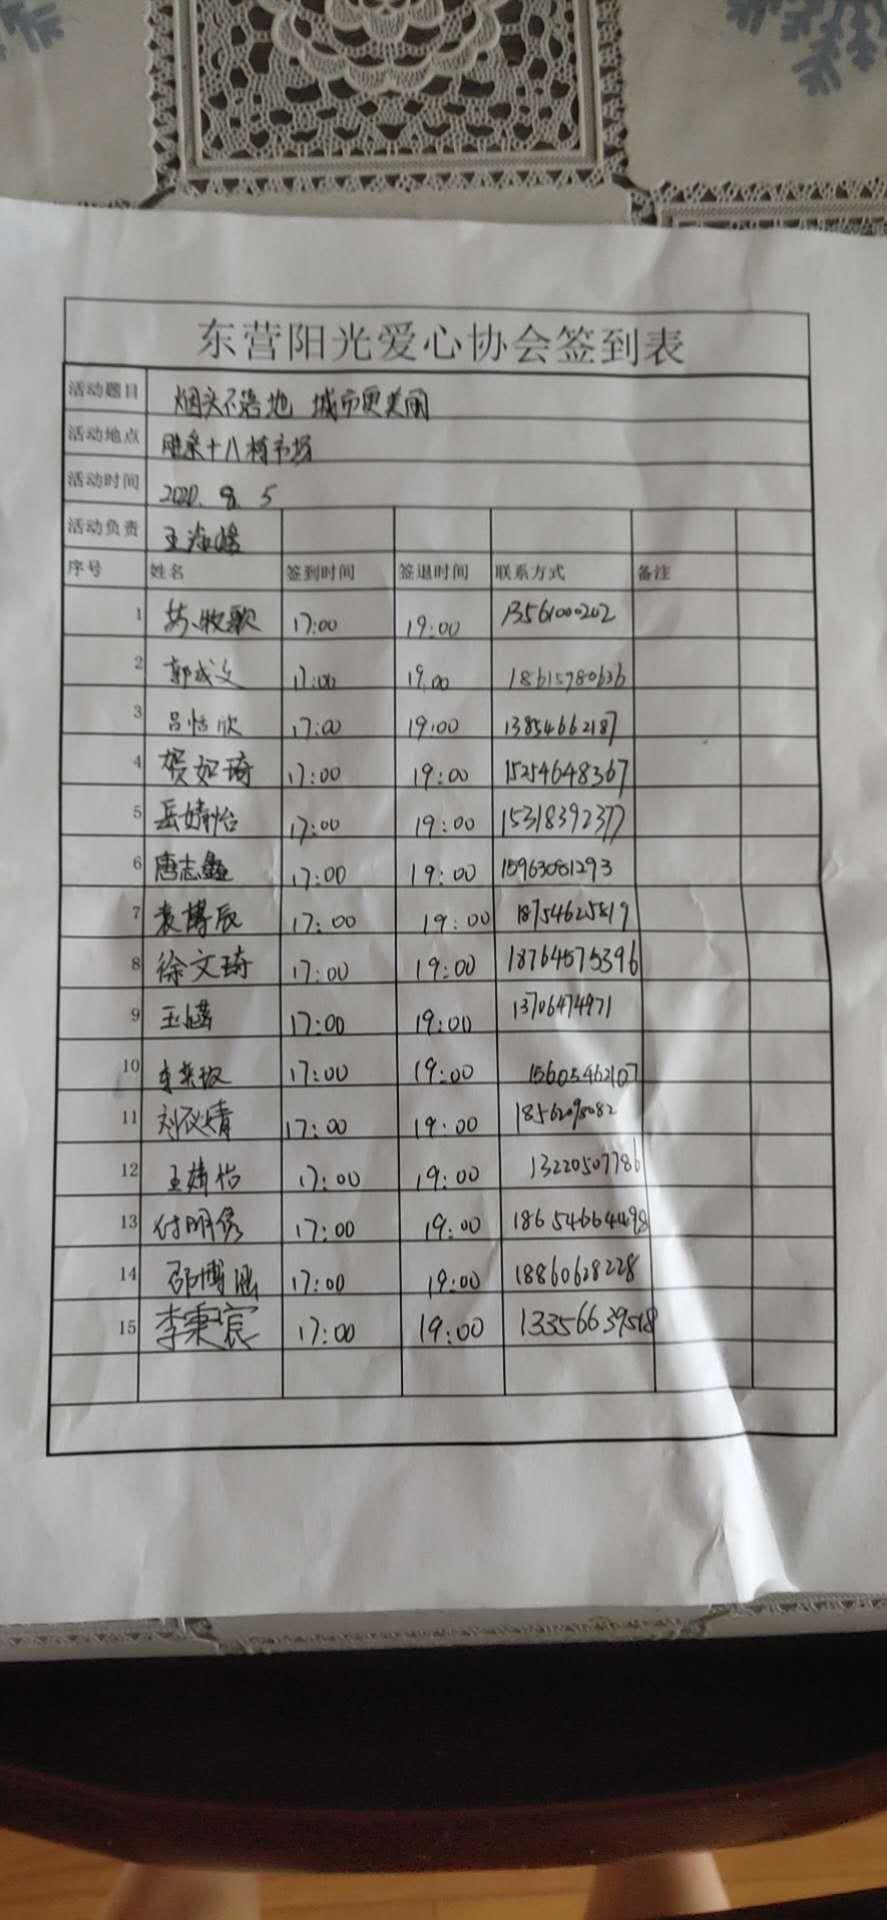 东营阳光爱心协会签到表
活动题目 烟头不落地 城市更美丽
活动地点 胜采十八村市场
活动时间 2020. 9. 5
活动负责 王
序号 姓名 签到时间 签退时间 联系方式 备注
1 牧歌 17:00 19:00 13561000202
2 郭成文 17:00 19:00 18615780636
3 吕恬欣 17:00 19:00 13854662187
4 贺如琦 17:00 19:00 15254648367
5 岳婧怡 17:00 19:00 15318392377
6 唐志鑫 17:00 19:00 15963081293
7 袁博辰 17:00 19:00 18754625819
8 徐文琦 17:00 19:00 18764575396
9 17:00 19:00 13706474971
10 17:00 19:00 15605462107
11 刘仪婧 17:00 19:00
12 王婧怡 17:00 19:00 13220507786
13 付明隽 17:00 19:00 18654664498
14 邵博涵 17:00 19:00 18860628228
15 李秉宸 17:00 19:00 13356639518